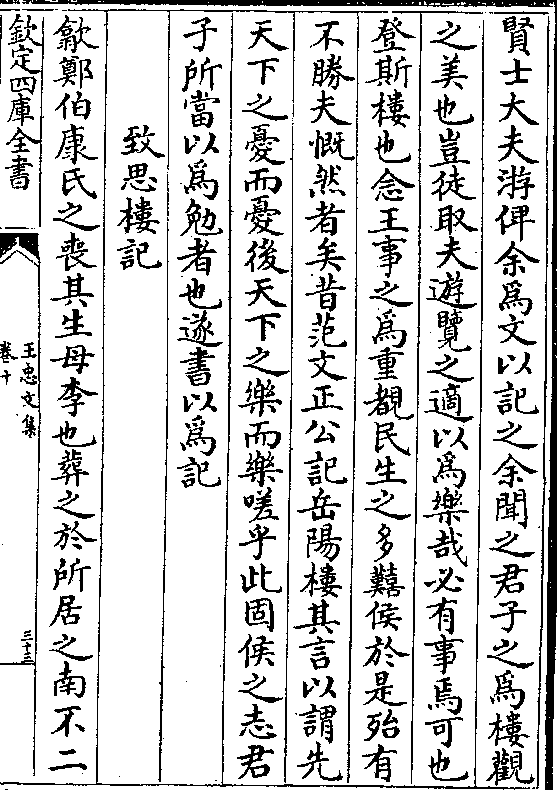 賢士大夫游俾余爲文以記之余聞之君子之爲樓觀
之美也豈徒取夫遊覽之適以爲樂哉必有事焉可也
登斯樓也念王事之爲重覩民生之多囏侯於是殆有
不勝夫慨然者矣昔范文正公記岳陽樓其言以謂先
天下之憂而憂後天下之樂而樂嗟乎此固侯之志君
子所當以爲勉者也遂書以爲記
致思樓記
歙鄭伯康氏之喪其生母李也葬之於所居之南不二
欽定四庫全書
王忠文集
卷十
三十三